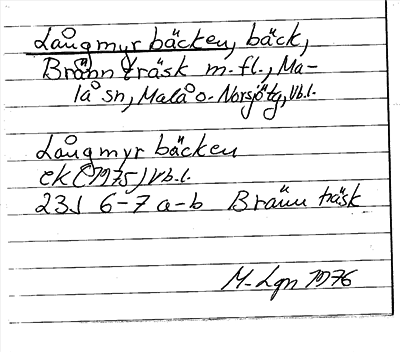 Långmyrbäcken, bäck,
Brännträsk m.fl., Ma-
lå sn, Malå o. Norsjö tg, Vb.l.
Långmyrbäcken
ek (1975) Vb.l.
23J 6-7 a-b Brännträsk
M-Lgn 1976